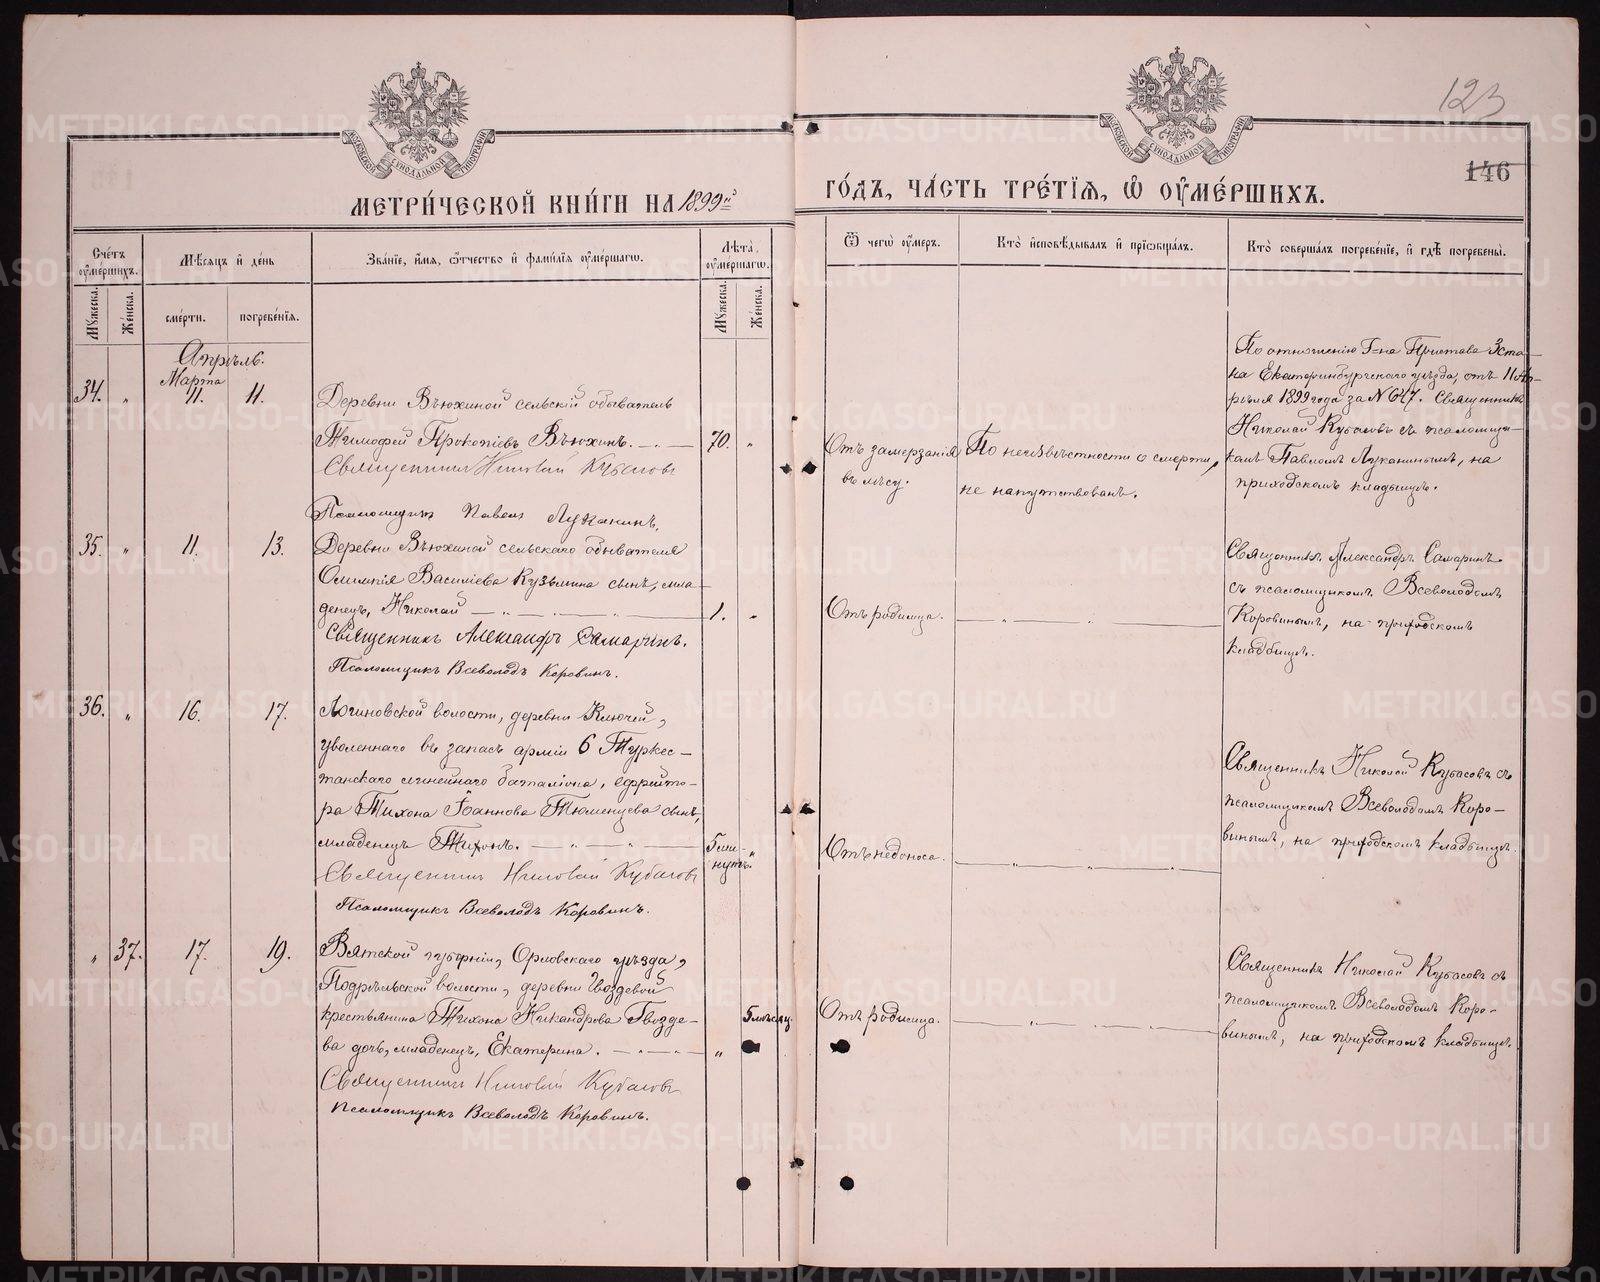 123
146
МОСКОВСКОЙ СѴНОДАЛЬНОЙ ТИПОГРАФІИ
МОСКОВСКОЙ СѴНОДАЛЬНОЙ ТИПОГРАФІИ
МЕТРИ́ЧЕСКОЙ КНИ́ГИ НА 1899й
ГО́ДЪ, ЧА́СТЬ ТРЕ́ТІѦ, Ѡ ОУ҆МЕ́РШИХЪ.
Сче́тъ оу҆ме́ршихъ.
Мꙋжеска.
Же́нска.
Мѣ́сѧцъ и҆ де́нь
сме́рти.
погребе́нїѧ.
Зва́нїе, и҆́мѧ, ѻ҆́тчество и҆ фами́лїѧ оу҆ме́ршагѡ.
Лѣ̑та̀ оу҆ме́ршагѡ.
Мꙋжеска.
Же́нска.
Ѿ чегѡ̀ оу҆́меръ.
Кто̀ и҆сповѣ́дывалъ и҆ прїѡбща́лъ.
Кто̀ соверша́лъ погребе́нїе, и҆ гдѣ̀ погребены̀.
Апрѣль.
Марта
34. " 11. 11.
Деревни Вьюхиной сельскій обыватель
Тимофей Прокопіевъ Вьюхинъ. — " — 70. "
Священникъ Николай Кубасовъ
Псаломщикъ Павелъ Луканинъ.
Отъ замерзанія
въ лѣсу.
По неизвѣстности о смерти,
не напутствованъ.
По отношенію Г-на Пристава 3 ста-
на Екатеринбургскаго уѣзда, отъ 11 Ап-
рѣля 1899 года за № 647. Священникъ
Николай Кубасовъ съ псаломщи-
комъ Павломъ Луканинымъ, на
приходскомъ кладбищѣ.
35. " 11. 13.
Деревни Вьюхиной сельскаго обывателя
Олимпія Василіева Кузьмина сынъ, мла-
денецъ, Николай — " — 1. "
Священникъ Александръ Самаринъ.
Псаломщикъ Всеволодъ Коровинъ.
Отъ родимца.
— " —
Священникъ Александръ Самаринъ
съ псаломщикомъ Всеволодомъ
Коровинымъ, на приходскомъ
кладбищѣ.
36. " 16. 17.
Логиновской волости, деревни Ключей,
уволеннаго въ запасъ арміи 6 Туркес-
танскаго линейнаго баталіона, ефрейто-
ра Тихона Іоаннова Тюменцева сынъ,
младенецъ Тихонъ. — " — 5 ми-
нутъ. "
Священникъ Николай Кубасовъ
Псаломщикъ Всеволодъ Коровинъ.
Отъ недоноса.
— " —
Священникъ Николай Кубасовъ съ
псаломщикомъ Всеволодомъ Коро-
винымъ, на приходскомъ кладбищѣ.
" 37. 17. 19.
Вятской губерніи, Орловскаго уѣзда,
Подрѣльской волости, деревни Гвоздевой
крестьянина Тихона Никандрова Гвозде-
ва дочь, младенецъ, Екатерина. — " — " 5 мѣсяц.
Священникъ Николай Кубасовъ
Псаломщикъ Всеволодъ Коровинъ.
Отъ родимца.
— " —
Священникъ Николай Кубасовъ съ
псаломщикомъ Всеволодомъ Коро-
винымъ, на приходскомъ кладбищѣ.
METRIKI.GASO-URAL.RU